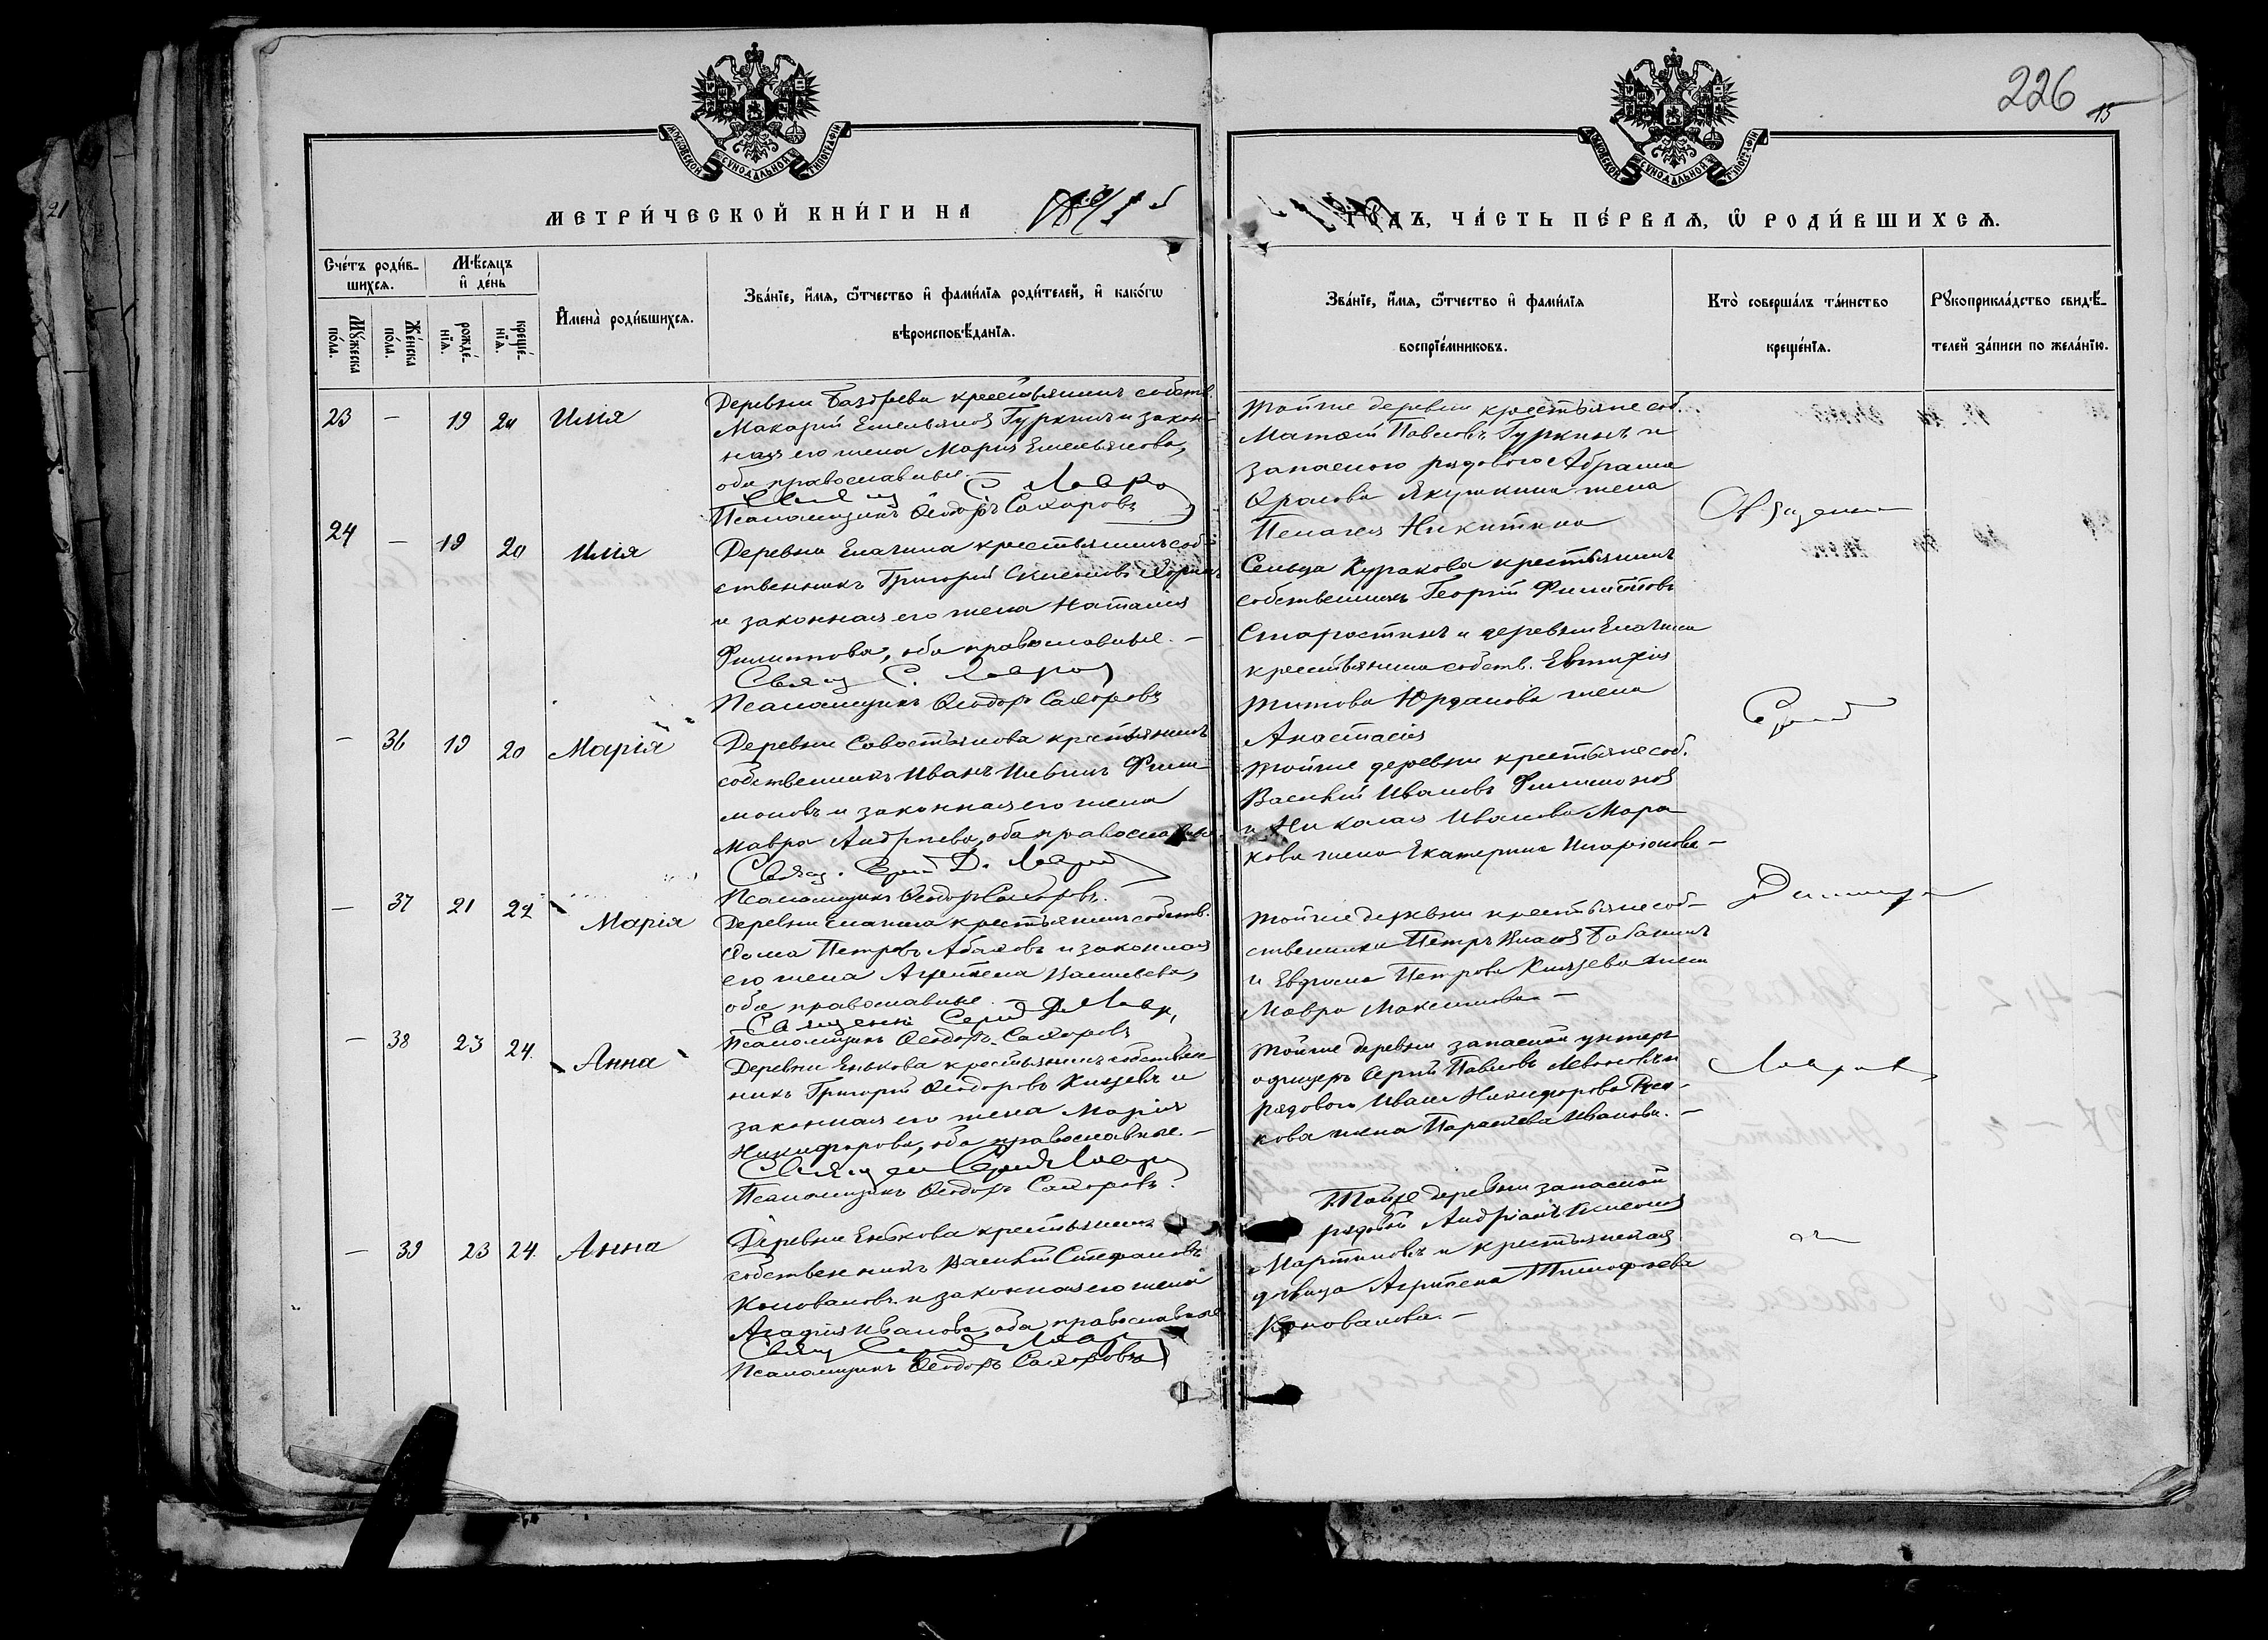 226
15
МОСКОВСКОЙ СѴНОДАЛЬНОЙ ТИПОГРАФІИ
МОСКОВСКОЙ СѴНОДАЛЬНОЙ ТИПОГРАФІИ
МЕТРИ́ЧЕСКОЙ КНИ́ГИ НА
ГО́ДЪ, ЧА́СТЬ ПЕ́РВАѦ, Ѡ҆ РОДИ́ВШИХСѦ.
Сче́тъ роди́в-
шихсѧ.
Мꙋ́жеска по́ла.
Же́нска по́ла.
Мѣ́сѧцъ
и҆ де́нь
рожде́-
нїѧ.
креще́-
нїѧ.
И҆мена̀ роди́вшихсѧ.
Зва́нїе, и҆́мѧ, ѻ҆́тчество и҆ фами́лїѧ роди́телей, и҆ како́гѡ
вѣроисповѣ́данїѧ.
Зва́нїе, и҆́мѧ, ѻ҆́тчество и҆ фами́лїѧ
воспрїе́мниковъ.
Кто̀ соверша́лъ та́инство
креще́нїѧ.
Рꙋкоприкла́дство свидѣ́-
телей за́писи по жела́нїю.
23 – 19 20 Илія
Деревни крестьянинъ собств.
Макарій Емельяновъ Гуркинъ и закон-
ная его жена Марія Емельянова,
оба православные
Псаломщикъ Ѳеодоръ Сахаровъ
Тойже деревни крестьяне соб.
Матѳей Павловъ Гуркинъ и
запаснаго рядоваго Абрама
Якушкина жена
Пелагея Никитина
24 – 19 20 Илія
Деревни Елагина крестьянинъ соб-
ственникъ Григорій
и законная его жена Наталія
Филиппова, оба православные. –
Псаломщикъ Ѳеодоръ Сахаровъ
Сельца Куракова крестьянинъ
собственникъ Георгій Филипповъ
Старостинъ и деревни Елагина
крестьянина собств. Евтихія
Титова Юрданова жена
Анастасія
– 36 19 20 Марія
Деревни Савостьянова крестьянинъ
собственникъ Иванъ Ильинъ Фили-
моновъ и законная его жена
Мавра Андреева, оба православные
Псаломщикъ Ѳеодоръ Сахаровъ.
Тойже деревни крестьяне соб.
Василій Ивановъ Филимоновъ
и Николая Иванова Мара
кова жена Екатерина Иларіонова –
– 37 21 22 Марія
Деревни Елагина крестьянинъ собств.
Ѳома Петровъ Абаловъ и законная
его жена Агрипена Васильева,
оба православные. –
Псаломщикъ Ѳеодоръ Сахаровъ
Тойже деревни крестьяне соб-
ственники Петръ Власовъ Бабанинъ
и Ефрема Петрова Князева жена
Мавра Максимова –
– 38 23 24. Анна
Деревни Енькова крестьянинъ собствен-
никъ Григорій Ѳеодоровъ Князевъ и
законная его жена Марія
Никифорова, оба православные. –
Псаломщикъ Ѳеодоръ Сахаровъ.
Тойже деревни запасной унтеръ
офицеръ Сергій Павловъ Левоновъ и
рядоваго Ивана Никифорова
кова жена Параскева Иванова. –
– 39 23 24. Анна
Деревни Енькова крестьянинъ
собственникъ Василій Стефановъ
Коноваловъ и законная его жена
Агафія Иванова, оба православные
Псаломщикъ Ѳеодоръ Сахаровъ
Тойже деревни запасной
рядовой Андріанъ
Мартиновъ и крестьянская
дѣвица Агрипена Тимофеева
Коновалова. –
Священникъ
Сергій
Димитріевъ
Лавровъ